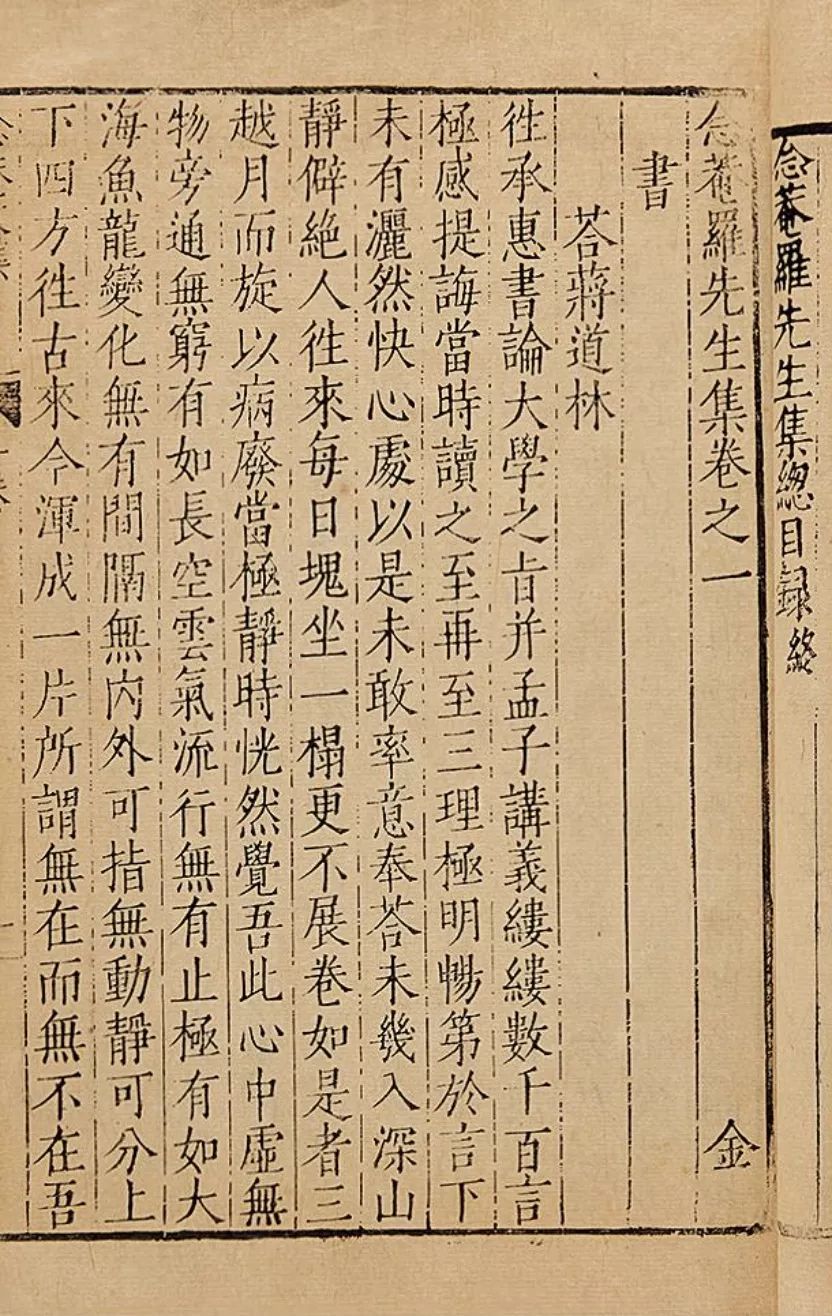 念菴羅先生集緫目録終
念菴羅先生集卷之一 金
書
荅蔣道林
徃承惠書論大學之㫖并孟子講義縷縷數千百言
極感提誨當時讀之至再至三理極明暢第於言下
未有灑然快心處以是未敢率意奉荅未幾入深山
靜僻絶人徃來每日塊坐一榻更不展卷如是者三
越月而旋以病廢當極靜時恍然覺吾此心中虛無
物旁通無窮有如長空雲氣流行無有止極有如大
海魚龍變化無有間隔無内外可指無動靜可分上
下四方徃古來今渾成一片所謂無在而無不在吾